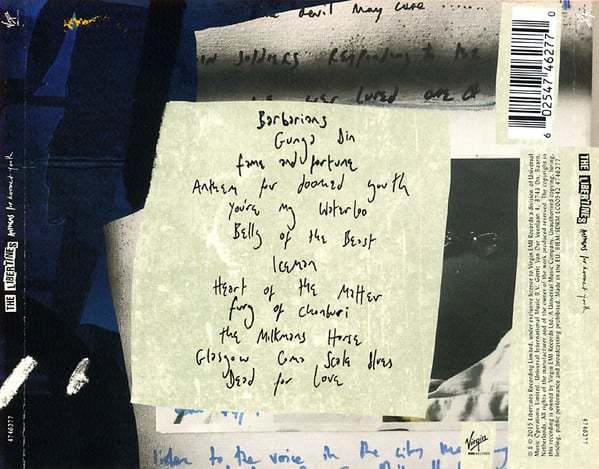 Devil May care ......
soldiers Responding to the
were lured
Barbarians
Gunga Din
fame and fortune
Anthem for doomed youth
You're My Waterloo
Belly of the Beast
Iceman
Heart of the Matter
fury of Chonburi
the Milkmans Horse
Glasgow Coma Scale Blues
Dead for Love
listen to the voice in the city
Virgin
EMI RECORDS
THE LIBERTINES ANTHEMS for doomed youth
4746277
6 02547 46277 0
℗ © 2015 Libertines Recording Limited, under exclusive licence to Virgin EMI Records a division of Universal
Music Operations Limited. Universal International Music B.V. Gerrit Van Der Veenlaan 4, 3743 Dn, Baarn,
Netherlands. All rights of the manufacturer and of the owner of the work produced reserved. The copyright in
this recording is owned by Virgin EMI Records Ltd. A Universal Music Company. Unauthorised copying, hiring,
lending, public performance and broadcasting prohibited. Made in the EU. BIEM/SDRM LC00542 4746277
THE LIBERTINES
4746277